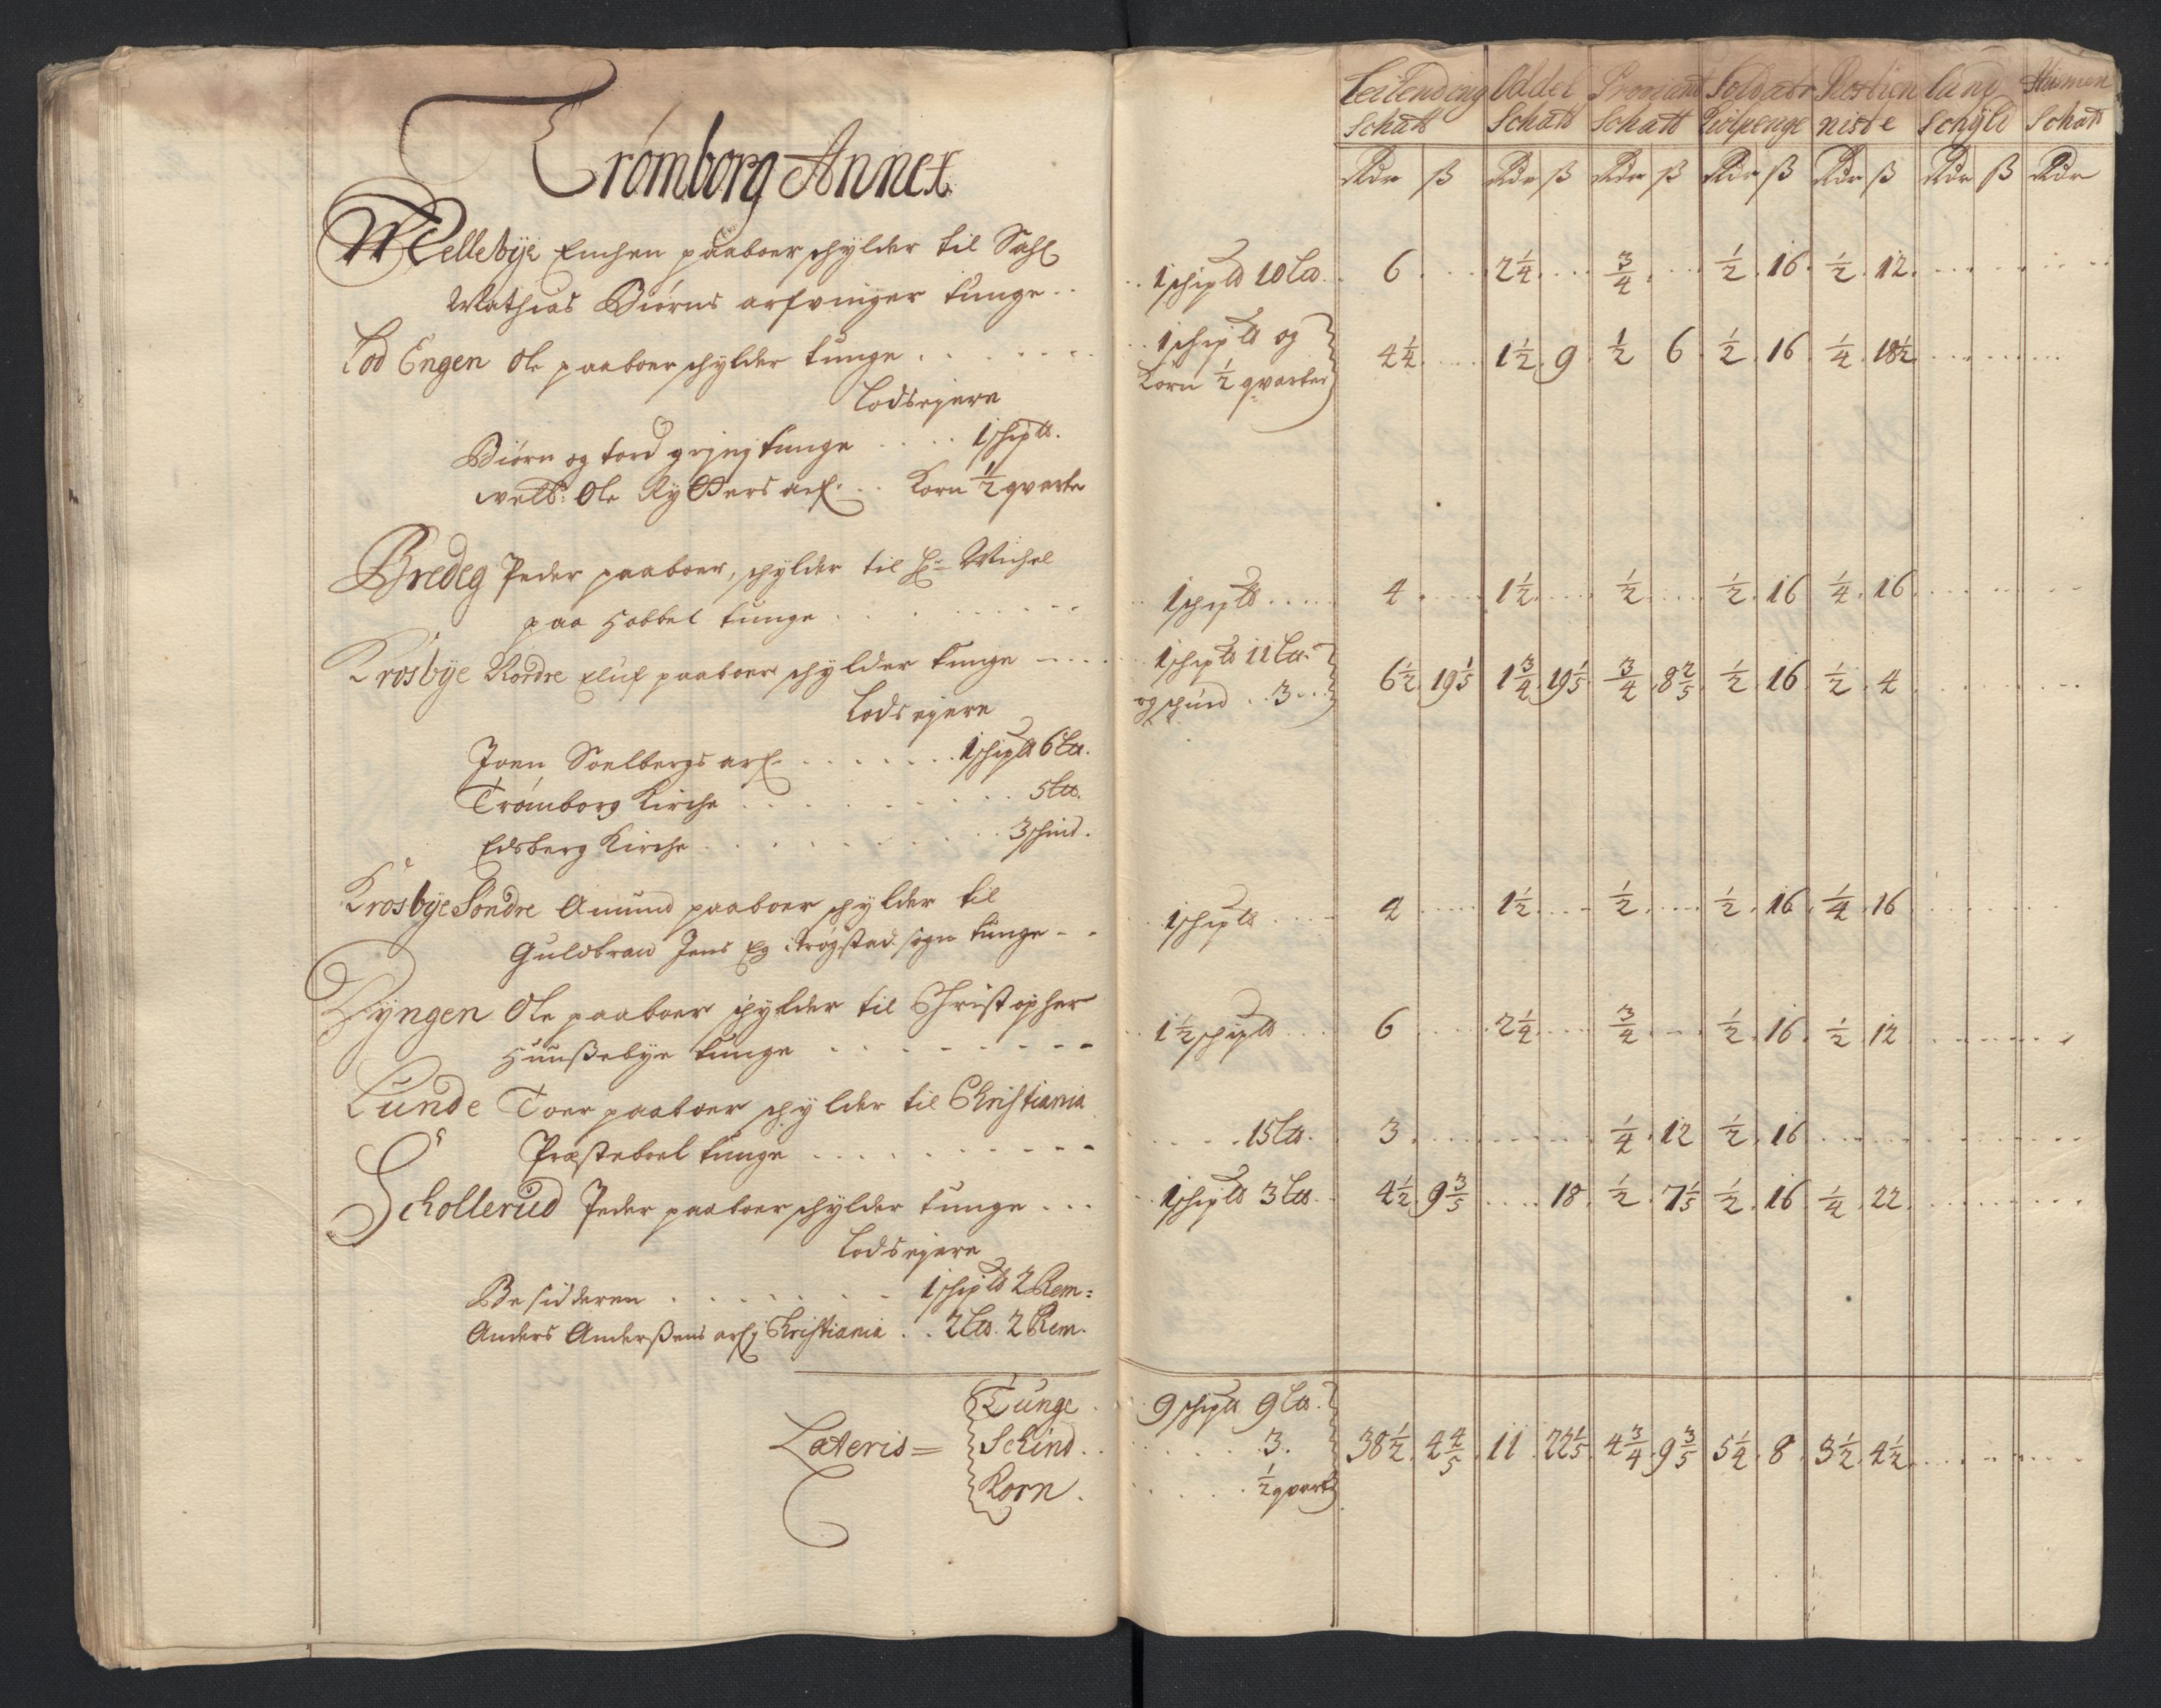 Trømborg Annex
Mellebÿe Einchen paaboer schylder til Sahl
Mathias Biørns arfvinger tunge
Lod Engen Ole paaboer schylder tunge
Lodsejere
Biørn og tord grjng tunge 1 schip℔.
welb: Ole Rytters arf: Korn ½ qvarter
Bredeg Peder paaboer, schylder til Hr Michel
paa Hobbel tunge
Krosbÿe Nordre Eluf paaboer schylder tunge
Lodsejere
Joen Soelbergs arf. 1 schip℔ 6 L℔.
Trømborg Kirche 5 L℔.
Edsberg Kirche 3 schind.
Krosbÿe Søndre Amund paaboer schylder til
Guldbrand Jens Eg i trøgstad sogn tunge
Dÿngen Ole paaboer schylder til Christopher
Huusßebye tunge
Lunde Toer paaboer schylder til Christiania
Præsteboel tunge
Schollerud Peder paaboer schylder tunge
Lodsejere
Besidderen 1 schip℔ 2 Rem:
Anders Anderßens arf: i Christiania 2 L℔. 2 Rem.
Lateris = Tunge
Schind
Korn
Leilending Schatt Oddel Schatt Proviant Schatt Soldatr Qvipenge Rostien niste Land Schÿld Husmen Schatt
Rdr ß Rdr ß Rdr ß Rdr ß Rdr ß Rdr ß Rdr
1 schip℔ 10 L℔. 6 2¼ ¾ ½ 16 ½ 12
1 schip℔ og Korn ½ qvarter 4¼ 1½ 9 ½ 6 ½ 16 ¼ 18½
1 schip℔ 4 1½ ½ ½ 16 ¼ 16
1 schip℔ 11 L℔. og schind 3 6½ 19⅕ 1¾ 19⅕ ¾ 8⅖ ½ 16 ½ 4
1 schip℔ 4 1½ ½ ½ 16 ¼ 16
1½ schip℔ 6 2¼ ¾ ½ 16 ½ 12
15 L℔. 3 ¼ 12 ½ 16
1 schip℔ 3 L℔ 4½ 9⅗ 18 ½ 7⅕ ½ 16 ¼ 22
9 schip℔ 9 L℔.
3. 38½ 4⅘ 11 22⅕ 4¾ 9⅗ 5¼ 8 3½ 4½
½ qvart